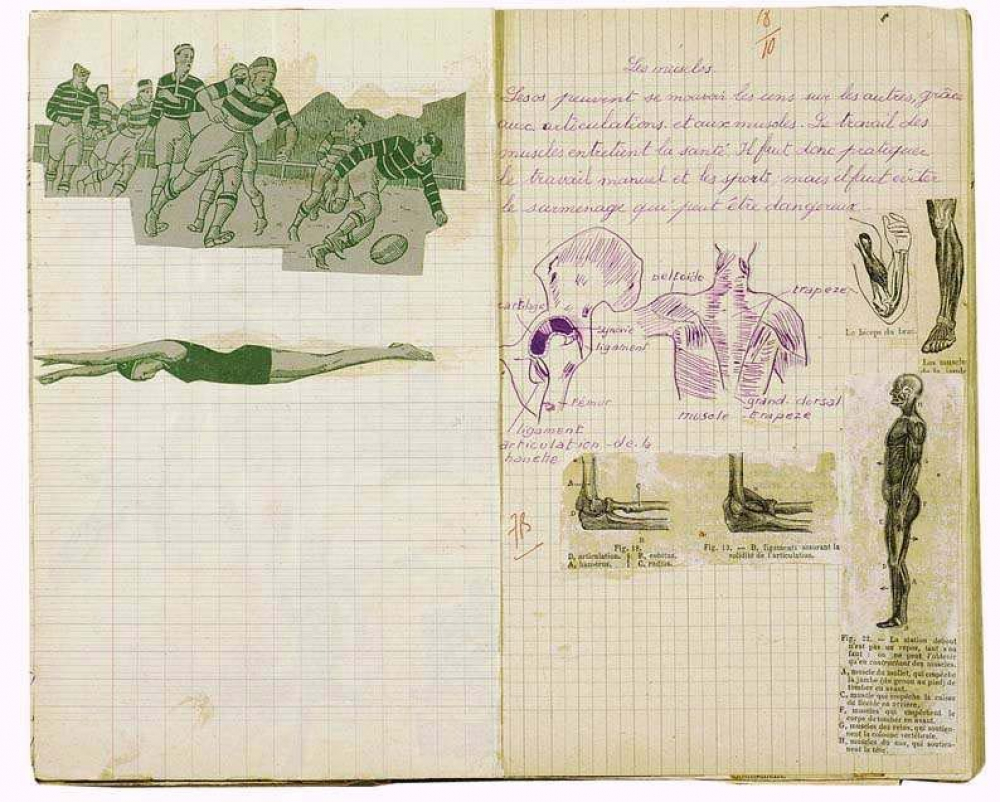 18
10
Les muscles.
Les os peuvent se mouvoir les uns sur les autres, grâce
aux articulations et aux muscles. Le travail des
muscles entretient la santé. Il faut donc pratiquer
le travail manuel et les sports, mais il faut éviter
le surmenage qui peut être dangereux.
cartilage
synovie
ligament
fémur
ligament
articulation de la
hanche
Deltoïde
trapèze
grand dorsal
muscle trapèze
Le biceps du bras.
Les muscles
de la jambe
TB
A
C
D
B
Fig. 18.
D, articulation. B, cubitus.
A, humérus. C, radius.
Fig. 19. — B, ligaments assurant la
solidité de l'articulation.
Fig. 22. — La station debout
n'est pas un repos, tant s'en
faut : on ne peut l'obtenir
qu'en contractant des muscles.
A, muscle du mollet, qui empêche
la jambe (du genou au pied) de
tomber en avant.
C, muscle qui empêche la cuisse
de fléchir en arrière.
F, muscles qui empêchent le
corps de tomber en avant.
G, muscles des reins, qui soutien-
nent la colonne vertébrale.
H, muscles du cou, qui soutien-
nent la tête.